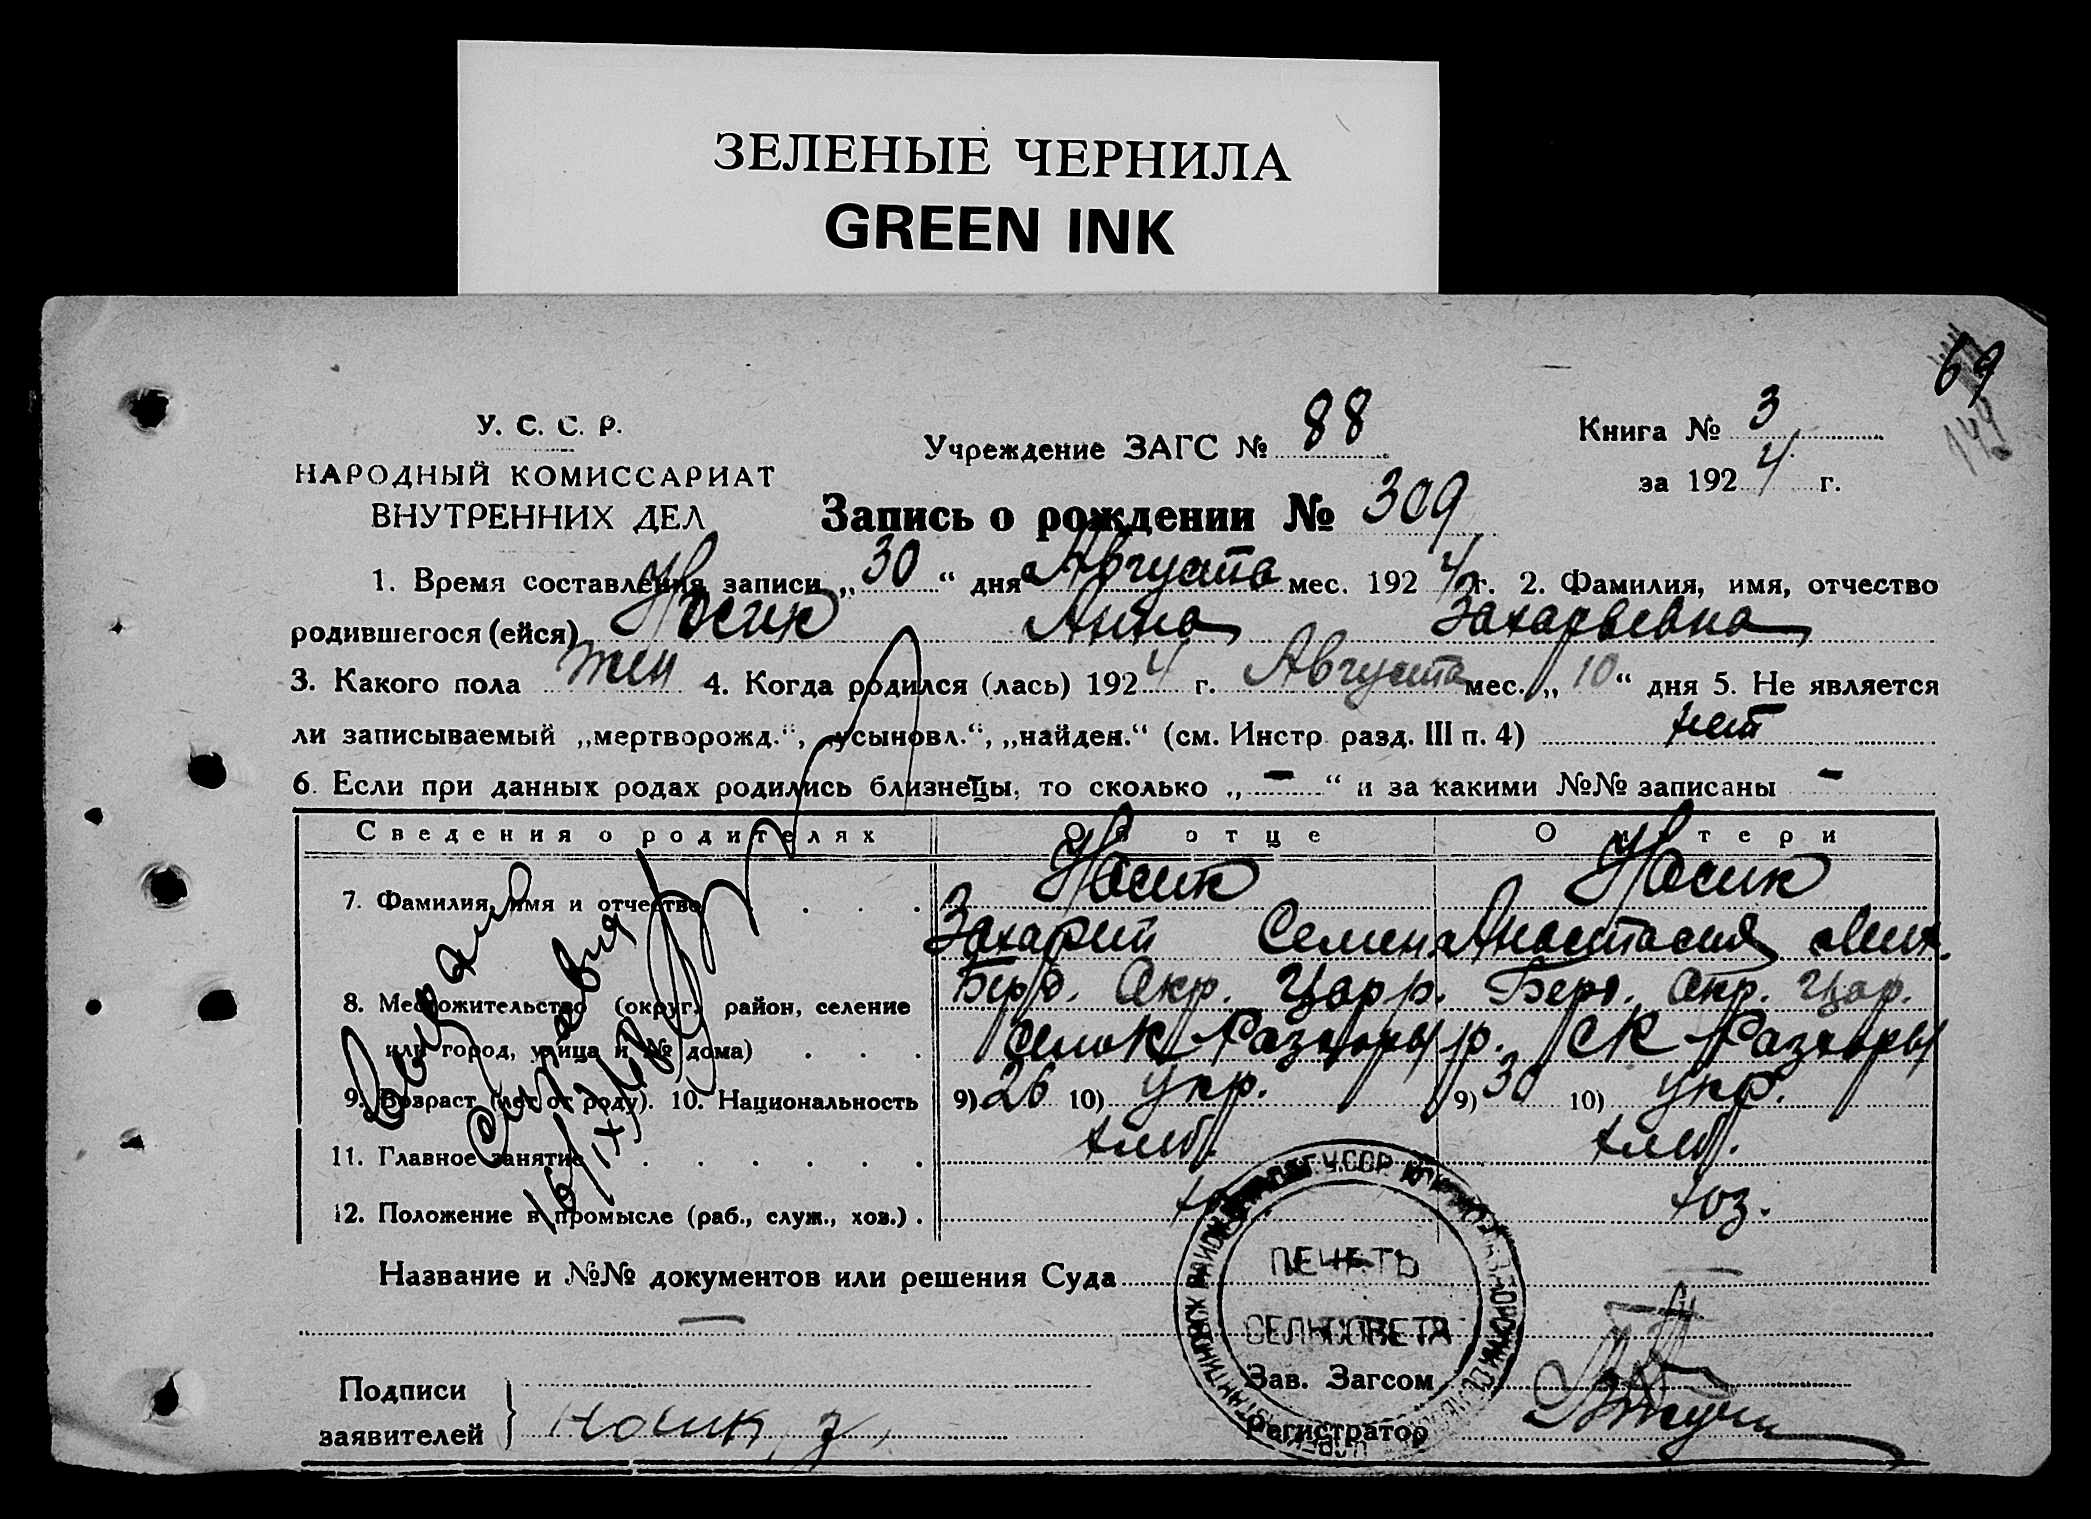 ЗЕЛЕНЫЕ ЧЕРНИЛА
GREEN INK
69
144
У. С. С. Р.
НАРОДНЫЙ КОМИССАРИАТ
ВНУТРЕННИХ ДЕЛ
Учреждение ЗАГС № 88
Книга № 3
за 1924 г.
Запись о рождении № 309
1. Время составления записи „30“ дня Августа мес. 1924 г. 2. Фамилия, имя, отчество
родившегося (ейся) Носик Анна Захарьевна
3. Какого пола жен 4. Когда родился (лась) 1924 г. Августа мес. „10“ дня 5. Не является
ли записываемый „мертворожд.“, „усыновл.“, „найден.“ (см. Инстр. разд. III п. 4) нет
6. Если при данных родах родились близнецы, то сколько „-“ и за какими №№ записаны -
Сведения о родителях Об отце О матери
7. Фамилия, имя и отчество Носик Носик
Захарий Семен. Анастасия
8. Местожительство (округ, район, селение Берд. Окр. Цар р. Берд. Окр. Цар.
или город, улица и № дома) Раздоры р. Раздоры
9. Возраст (лет от роду). 10. Национальность 9) 26 10) укр. 9) 30 10) укр.
11. Главное занятие хлеб. хлеб.
12. Положение в промысле (раб., служ., хоз.) хоз.
Название и №№ документов или решения Суда
ПЕЧАТЬ
СЕЛЬСОВЕТА
Подписи
заявителей Носик З.
Зав. Загсом
Регистратор